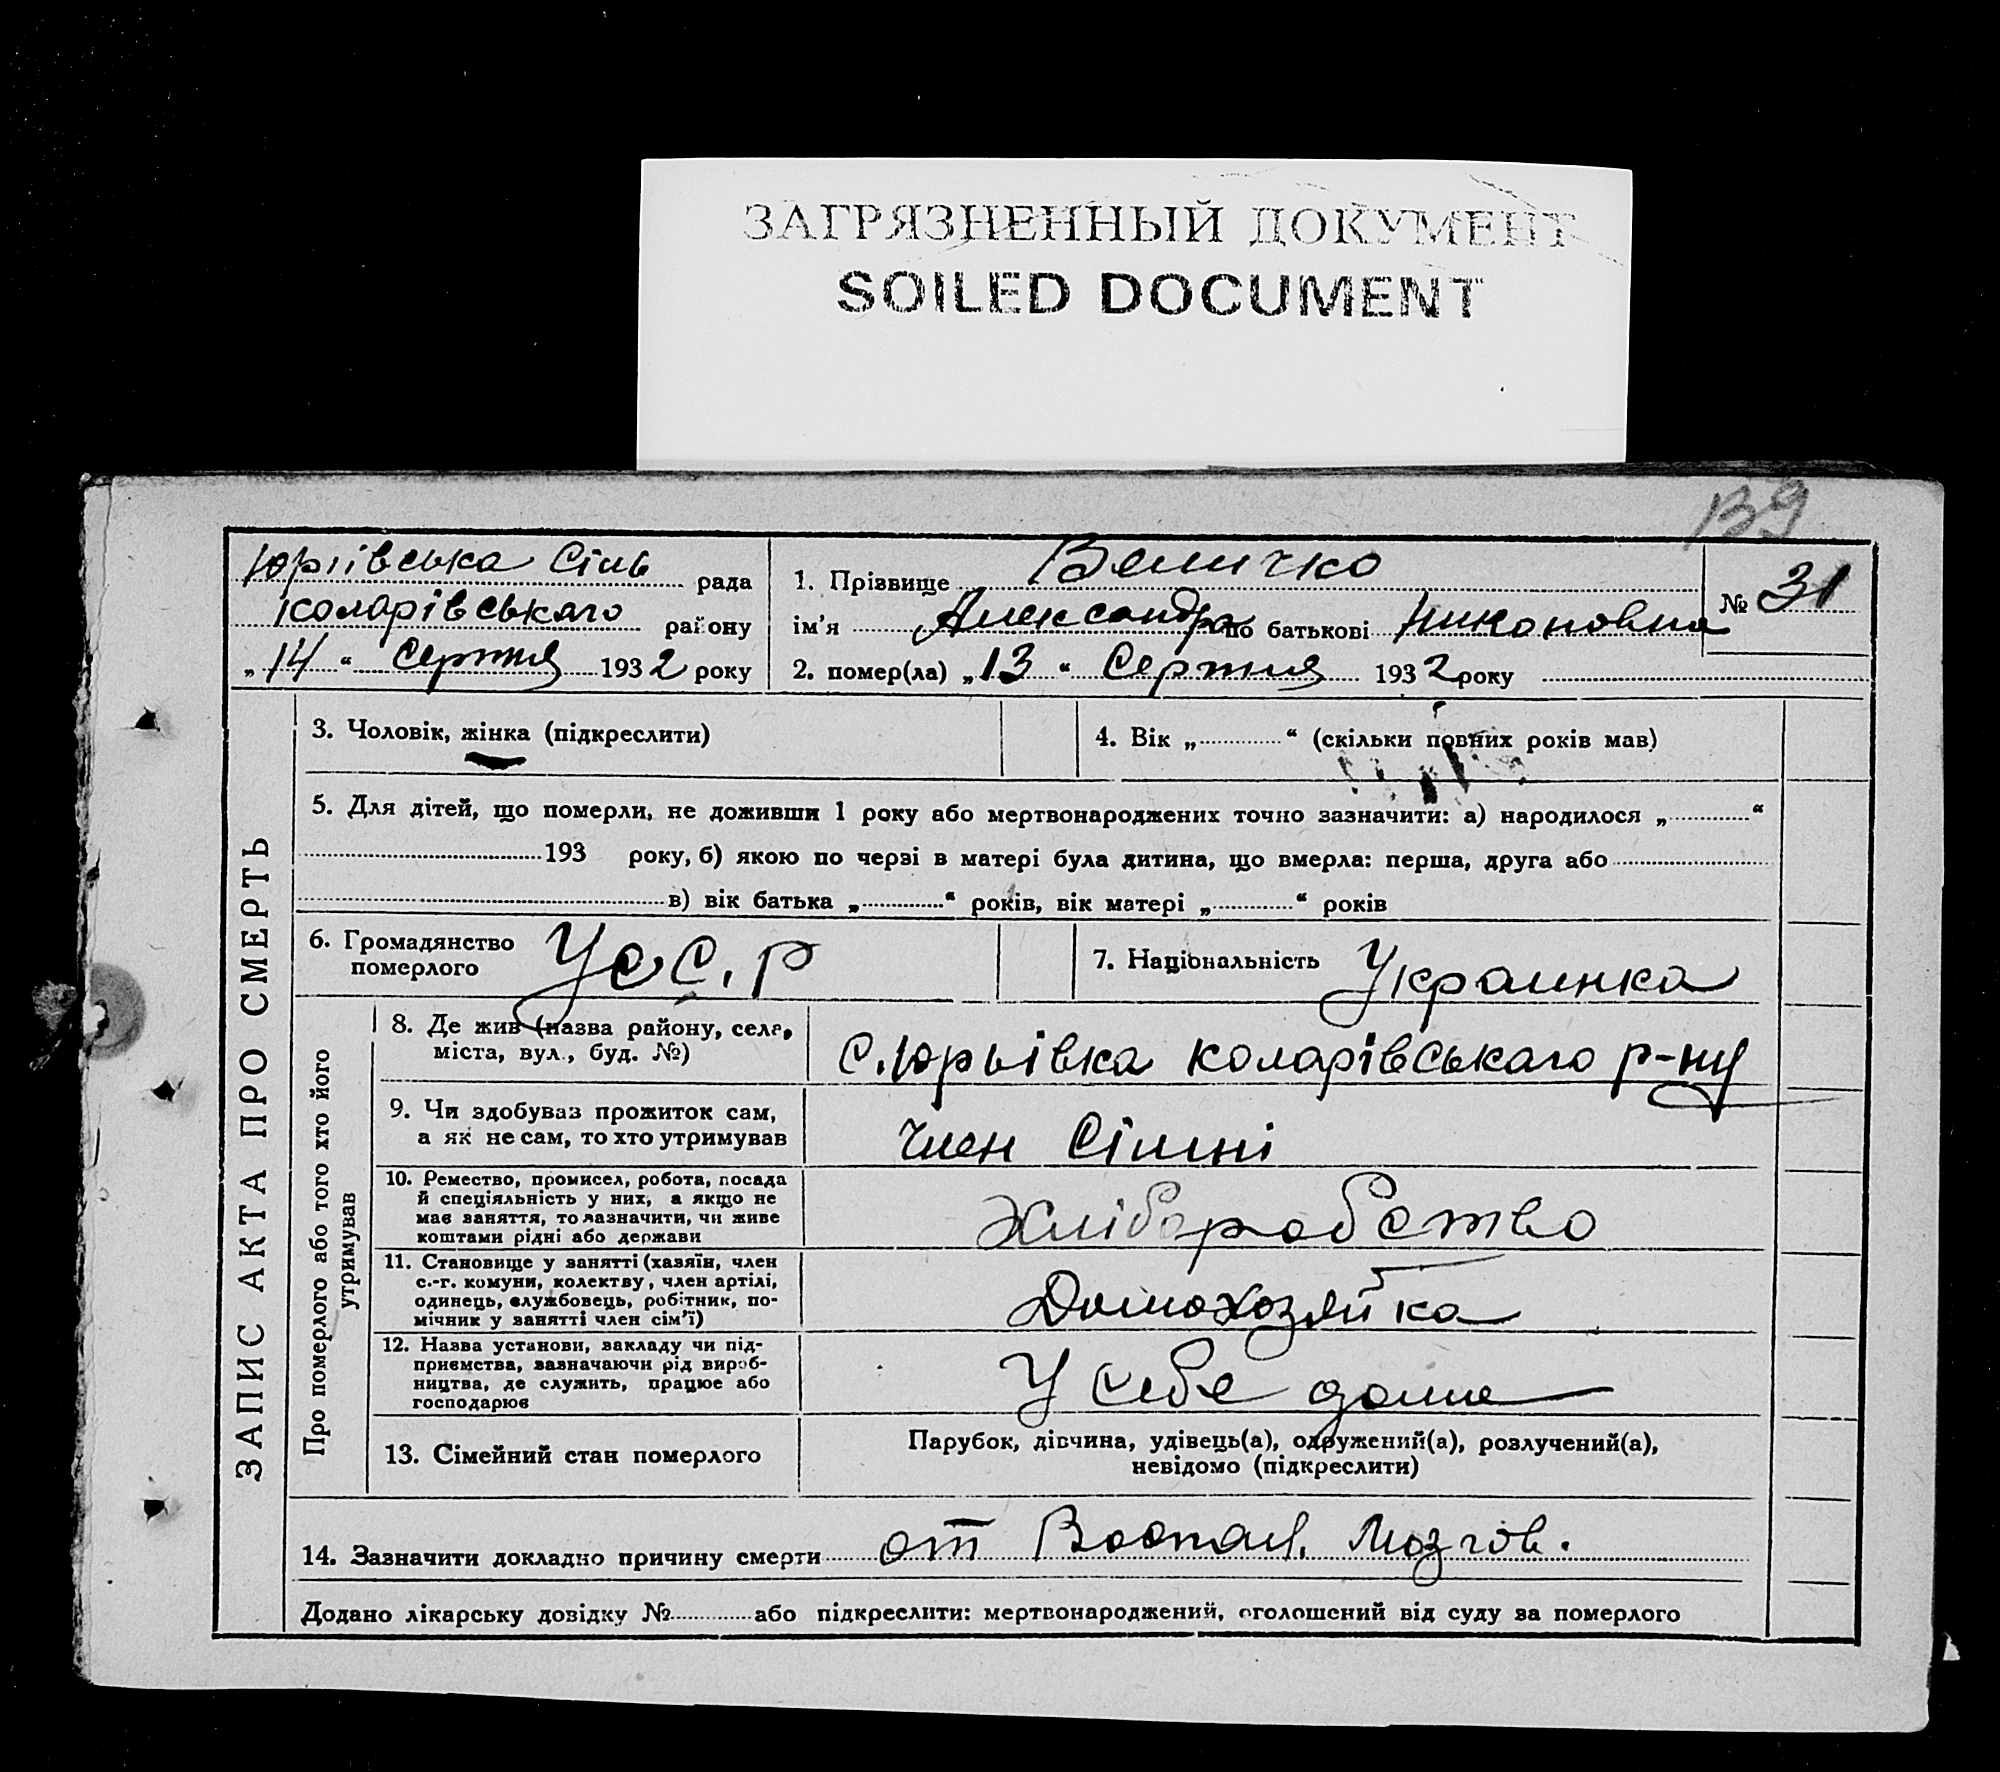 ЗАГРЯЗНЕННЫЙ ДОКУМЕНТ
SOILED DOCUMENT
139
Юріівська Сіль рада
Коларівського району
„14“ Серпня 1932 року
1. Прізвище Величко
ім’я Александра по батькові Никоновна
№ 31
2. помер(ла) „13“ Серпня 1932 року
ЗАПИС АКТА ПРО СМЕРТЬ
3. Чоловік, жінка (підкреслити)
4. Вік „ “ (скільки повних років мав)
5. Для дітей, що померли, не доживши 1 року або мертвонароджених точно зазначити: а) народилося „ “
193 року, б) якою по черзі в матері була дитина, що вмерла: перша, друга або
в) вік батька „ “ років, вік матері „ “ років
6. Громадянство померлого УСС.Р
7. Національність Украинка
Про померлого або того хто його утримував
8. Де жив (назва району, села,
міста, вул., буд. №)
С.Юрьівка Коларівського р-ну
9. Чи здобував прожиток сам,
а як не сам, то хто утримував
член Сімні
10. Ремество, промисел, робота, посада
й спеціяльність у них, а якщо не
має заняття, то зазначити, чи живе
коштами рідні або держави
Хліборобство
11. Становище у занятті (хазяїн, член
с.-г. комуни, колектву, член артілі,
одинець, службовець, робітник, по-
мічник у занятті член сім’ї)
Домохозяйка
12. Назва установи, закладу чи під-
приємства, зазначаючи рід вироб-
ництва, де служить, працює або
господарює
У себе доме
13. Сімейний стан померлого
Парубок, дівчина, удівець(а), одружений(а), розлучений(а),
невідомо (підкреслити)
14. Зазначити докладно причину смерти от Воспал. мозгов.
Додано лікарську довідку № або підкреслити: мертвонароджений, оголошений від суду за померлого